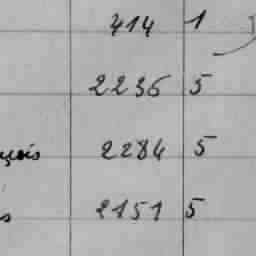 414 1
2236 5
2284 5
2151 5